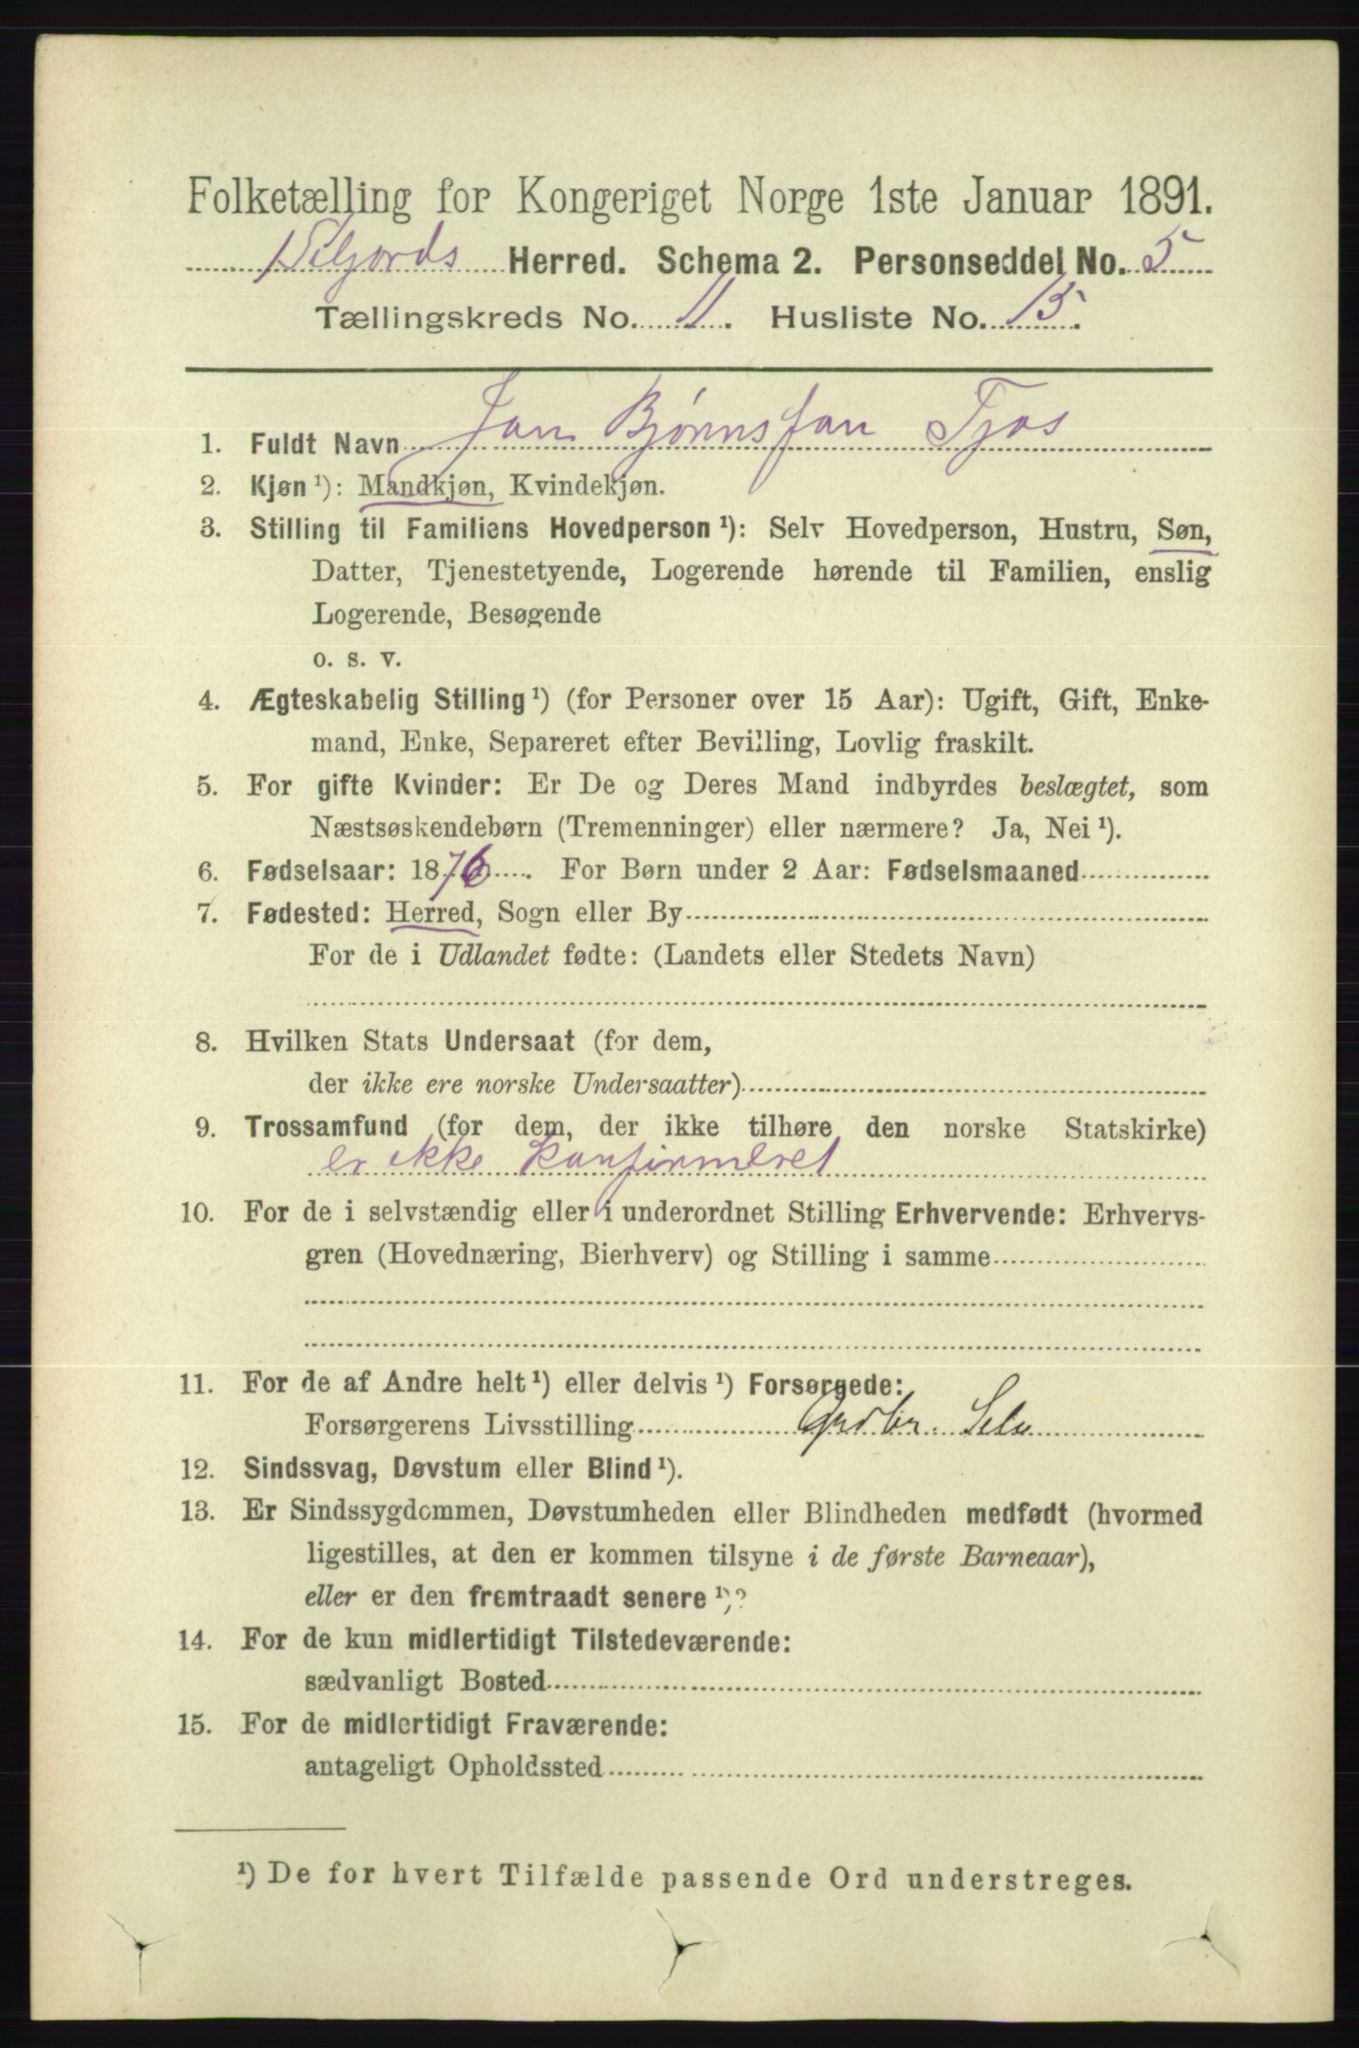 Folketælling for Kongeriget Norge 1ste Januar 1891.
Seljords Herred. Schema 2. Personseddel No. 5
Tællingskreds No. 11. Husliste No. 15.
1. Fuldt Navn Jon Bjønnsson Tjos
2. Kjøn ¹): Mandkjøn, Kvindekjøn.
3. Stilling til Familiens Hovedperson ¹): Selv Hovedperson, Hustru, Søn,
Datter, Tjenestetyende, Logerende hørende til Familien, enslig
Logerende, Besøgende
o. s. v.
4. Ægteskabelig Stilling ¹) (for Personer over 15 Aar): Ugift, Gift, Enke-
mand, Enke, Separeret efter Bevilling, Lovlig fraskilt.
5. For gifte Kvinder: Er De og Deres Mand indbyrdes beslægtet, som
Næstsøskendebørn (Tremenninger) eller nærmere? Ja, Nei ¹).
6. Fødselsaar: 1876. For Børn under 2 Aar: Fødselsmaaned
7. Fødested: Herred, Sogn eller By
For de i Udlandet fødte: (Landets eller Stedets Navn)
8. Hvilken Stats Undersaat (for dem,
der ikke ere norske Undersaatter)
9. Trossamfund (for dem, der ikke tilhøre den norske Statskirke)
er ikke konfirmeret
10. For de i selvstændig eller i underordnet Stilling Erhvervende: Erhvervs-
gren (Hovednæring, Bierhverv) og Stilling i samme
11. For de af Andre helt ¹) eller delvis ¹) Forsørgede:
Forsørgerens Livsstilling Grdbr. Selv
12. Sindssvag, Døvstum eller Blind ¹).
13. Er Sindssygdommen, Døvstumheden eller Blindheden medfødt (hvormed
ligestilles, at den er kommen tilsyne i de første Barneaar),
eller er den fremtraadt senere ¹)?
14. For de kun midlertidigt Tilstedeværende:
sædvanligt Bosted
15. For de midlertidigt Fraværende:
antageligt Opholdssted
¹) De for hvert Tilfælde passende Ord understreges.